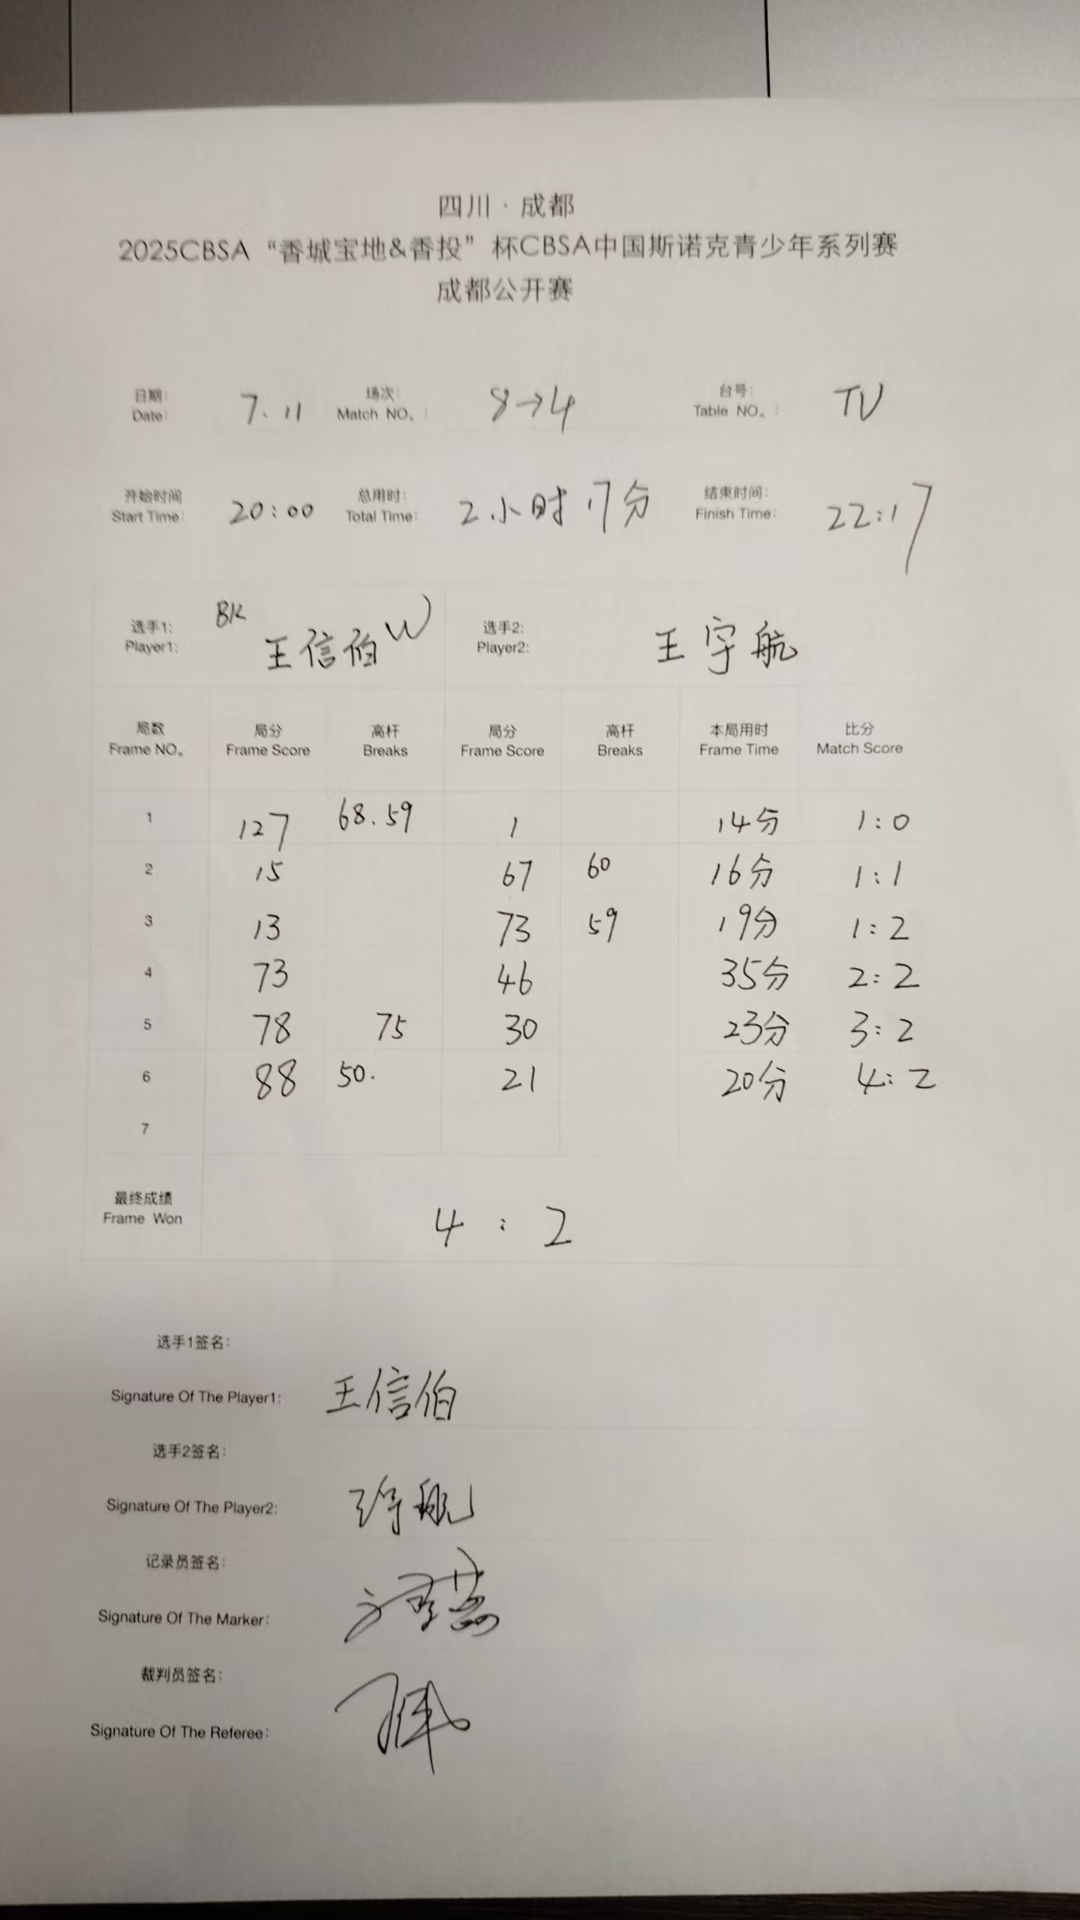 四川·成都
2025CBSA“香城宝地&香投”杯CBSA中国斯诺克青少年系列赛
成都公开赛
日期: 7.11 场次: 8→4 台号: TV
Date: Match NO.: Table NO.:
开始时间 20:00 总用时: 2小时17分 结束时间: 22:17
Start Time: Total Time: Finish Time:
选手1: BK 王信伯 W 选手2: 王宇航
Player1: Player2:
局数 局分 高杆 局分 高杆 本局用时 比分
Frame NO. Frame Score Breaks Frame Score Breaks Frame Time Match Score
1 127 68.59 1 14分 1:0
2 15 67 60 16分 1:1
3 13 73 59 19分 1:2
4 73 46 35分 2:2
5 78 75 30 23分 3:2
6 88 50. 21 20分 4:2
7
最终成绩
Frame Won 4:2
选手1签名:
Signature Of The Player1: 王信伯
选手2签名:
Signature Of The Player2: 王宇航
记录员签名:
Signature Of The Marker:
裁判员签名:
Signature Of The Referee: